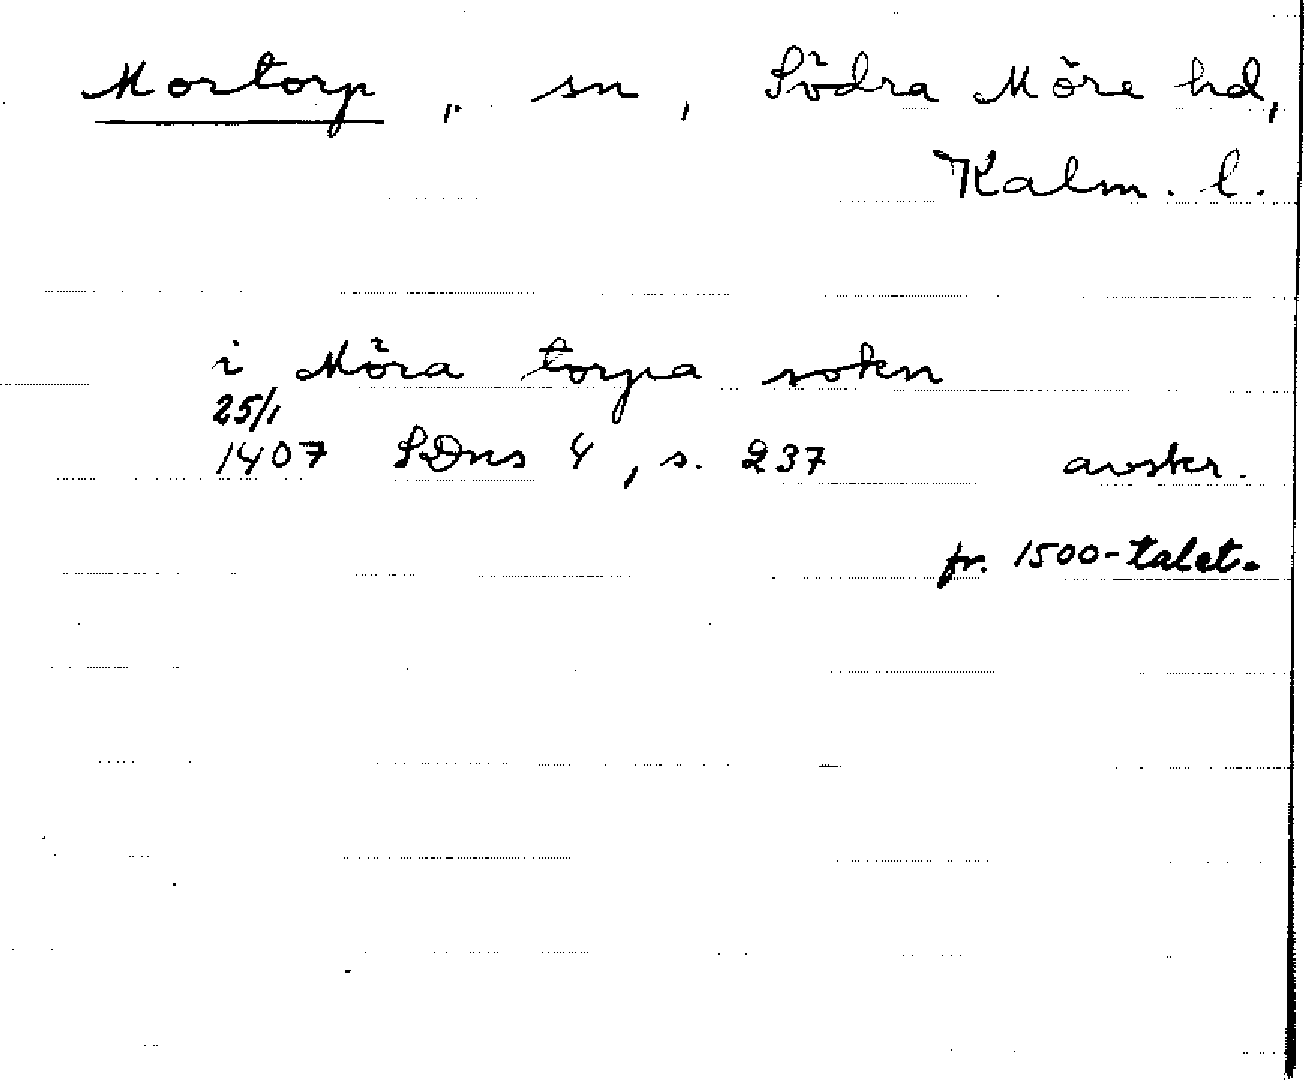 Mortorp, sn, Södra Möre hd,
Kalm. l.
i Möra torpa sokn
25/1
1407 SDns 4, s. 237 avskr.
fr. 1500-talet.